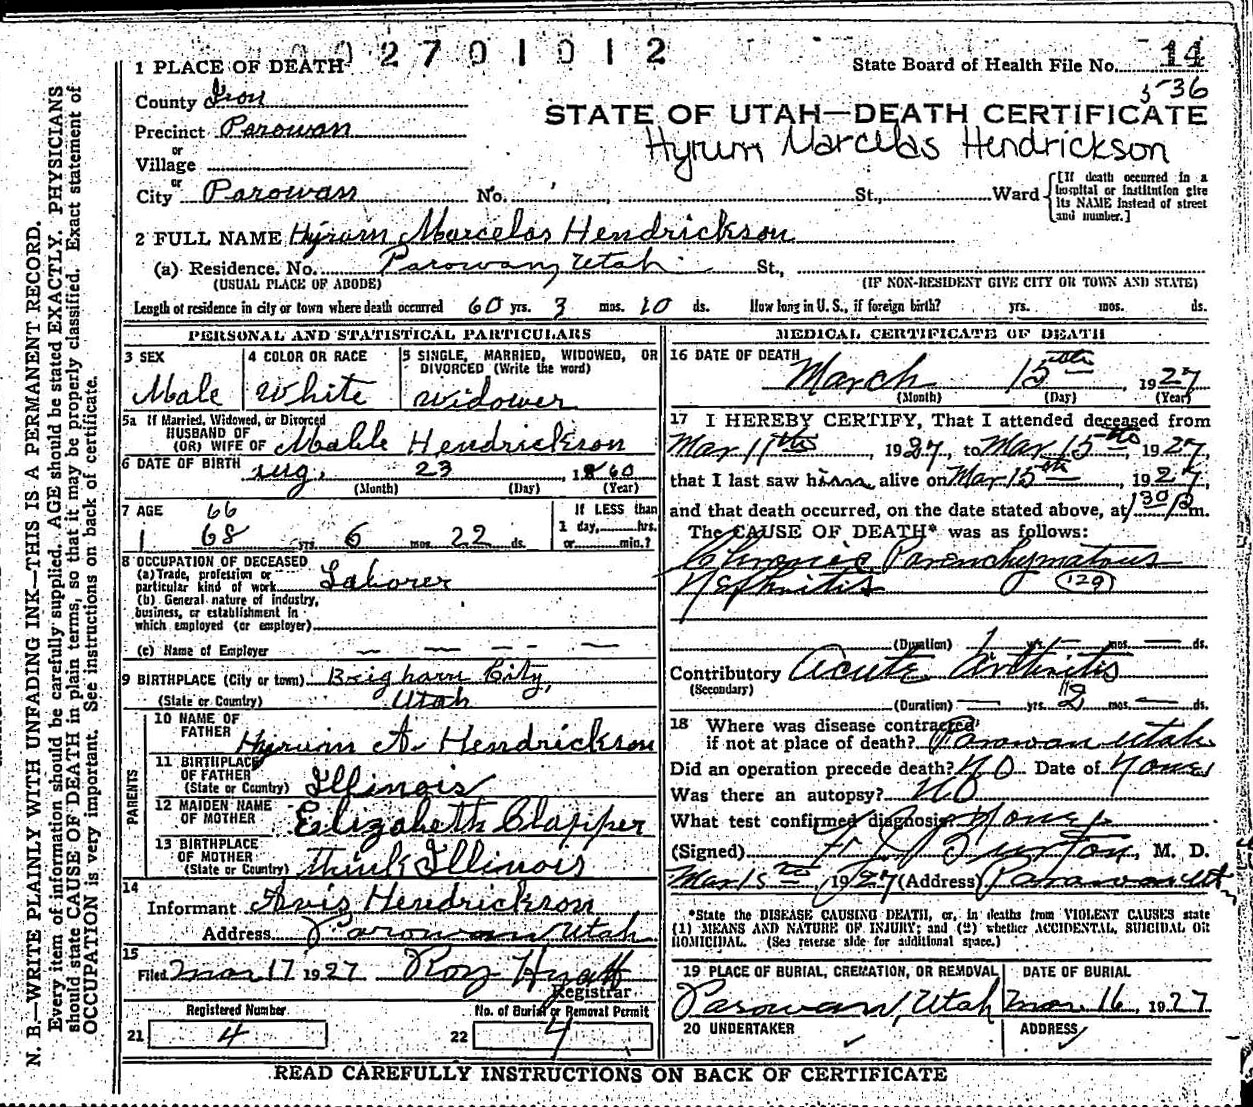 002701012
1 PLACE OF DEATH
State Board of Health File No. 14
536
County Iron
STATE OF UTAH—DEATH CERTIFICATE
Precinct Parowan
Hyrum Marcelas Hendrickson
or
Village
or
City Parowan No. St., Ward
[If death occurred in a hospital or institution give its NAME instead of street and number.]
2 FULL NAME Hyrum Marcelas Hendrickson
(a) Residence. No. Parowan, Utah St.,
(USUAL PLACE OF ABODE) (IF NON-RESIDENT GIVE CITY OR TOWN AND STATE)
Length of residence in city or town where death occurred 60 yrs. 3 mos. 10 ds. How long in U. S., if foreign birth? yrs. mos. ds.
PERSONAL AND STATISTICAL PARTICULARS
3 SEX Male
4 COLOR OR RACE White
5 SINGLE, MARRIED, WIDOWED, OR
DIVORCED (Write the word)
Widower
5a If Married, Widowed, or Divorced
HUSBAND OF
(OR) WIFE OF Hendrickson
6 DATE OF BIRTH Aug. 23 1860
(Month) (Day) (Year)
7 AGE 66
68 yrs. 6 mos. 22 ds.
If LESS than
1 day, hrs.
or min.?
8 OCCUPATION OF DECEASED
(a) Trade, profession or
particular kind of work Laborer
(b) General nature of industry,
business, or establishment in
which employed (or employer)
(c) Name of Employer — — — —
9 BIRTHPLACE (City or town) Brigham City,
(State or Country) Utah
PARENTS
10 NAME OF
FATHER Hyrum A. Hendrickson
11 BIRTHPLACE
OF FATHER
(State or Country) Illinois
12 MAIDEN NAME
OF MOTHER Elizabeth Clapper
13 BIRTHPLACE
OF MOTHER
(State or Country) think Illinois
14
Informant Avis Hendrickson
Address Parowan, Utah
15
Filed Mar 17 1927 Roy Hyatt
Registrar
Registered Number
No. of Burial or Removal Permit
21 4
22 4
MEDICAL CERTIFICATE OF DEATH
16 DATE OF DEATH
March 15th, 1927
(Month) (Day) (Year)
17 I HEREBY CERTIFY, That I attended deceased from
Mar 11th, 1927, to Mar 15th, 1927,
that I last saw him alive on Mar 15th, 1927,
and that death occurred, on the date stated above, at 1 30 P m.
The CAUSE OF DEATH* was as follows:
Chronic Parenchymatous
Nephritis (129)
(Duration) 1 yrs. — mos. — ds.
Contributory Acute Arthritis
(Secondary)
(Duration) — yrs. 2 mos. — ds.
18 Where was disease contracted
if not at place of death? Parowan Utah
Did an operation precede death? No Date of None
Was there an autopsy? No
What test confirmed diagnosis? None
(Signed) Burton, M. D.
Mar 15th, 1927 (Address) Parowan Utah
*State the DISEASE CAUSING DEATH, or, in deaths from VIOLENT CAUSES state
(1) MEANS AND NATURE OF INJURY; and (2) whether ACCIDENTAL, SUICIDAL OR
HOMICIDAL. (See reverse side for additional space.)
19 PLACE OF BURIAL, CREMATION, OR REMOVAL
Parowan, Utah
DATE OF BURIAL
Mar. 16, 1927
20 UNDERTAKER
ADDRESS
READ CAREFULLY INSTRUCTIONS ON BACK OF CERTIFICATE
N. B.—WRITE PLAINLY WITH UNFADING INK—THIS IS A PERMANENT RECORD.
Every item of information should be carefully supplied. AGE should be stated EXACTLY. PHYSICIANS
should state CAUSE OF DEATH in plain terms, so that it may be properly classified. Exact statement of
OCCUPATION is very important. See instructions on back of certificate.